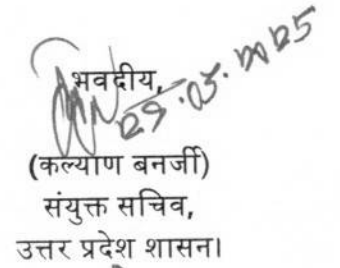 भवदीय,
29.05.2025
(कल्याण बनर्जी)
संयुक्त सचिव,
उत्तर प्रदेश शासन।